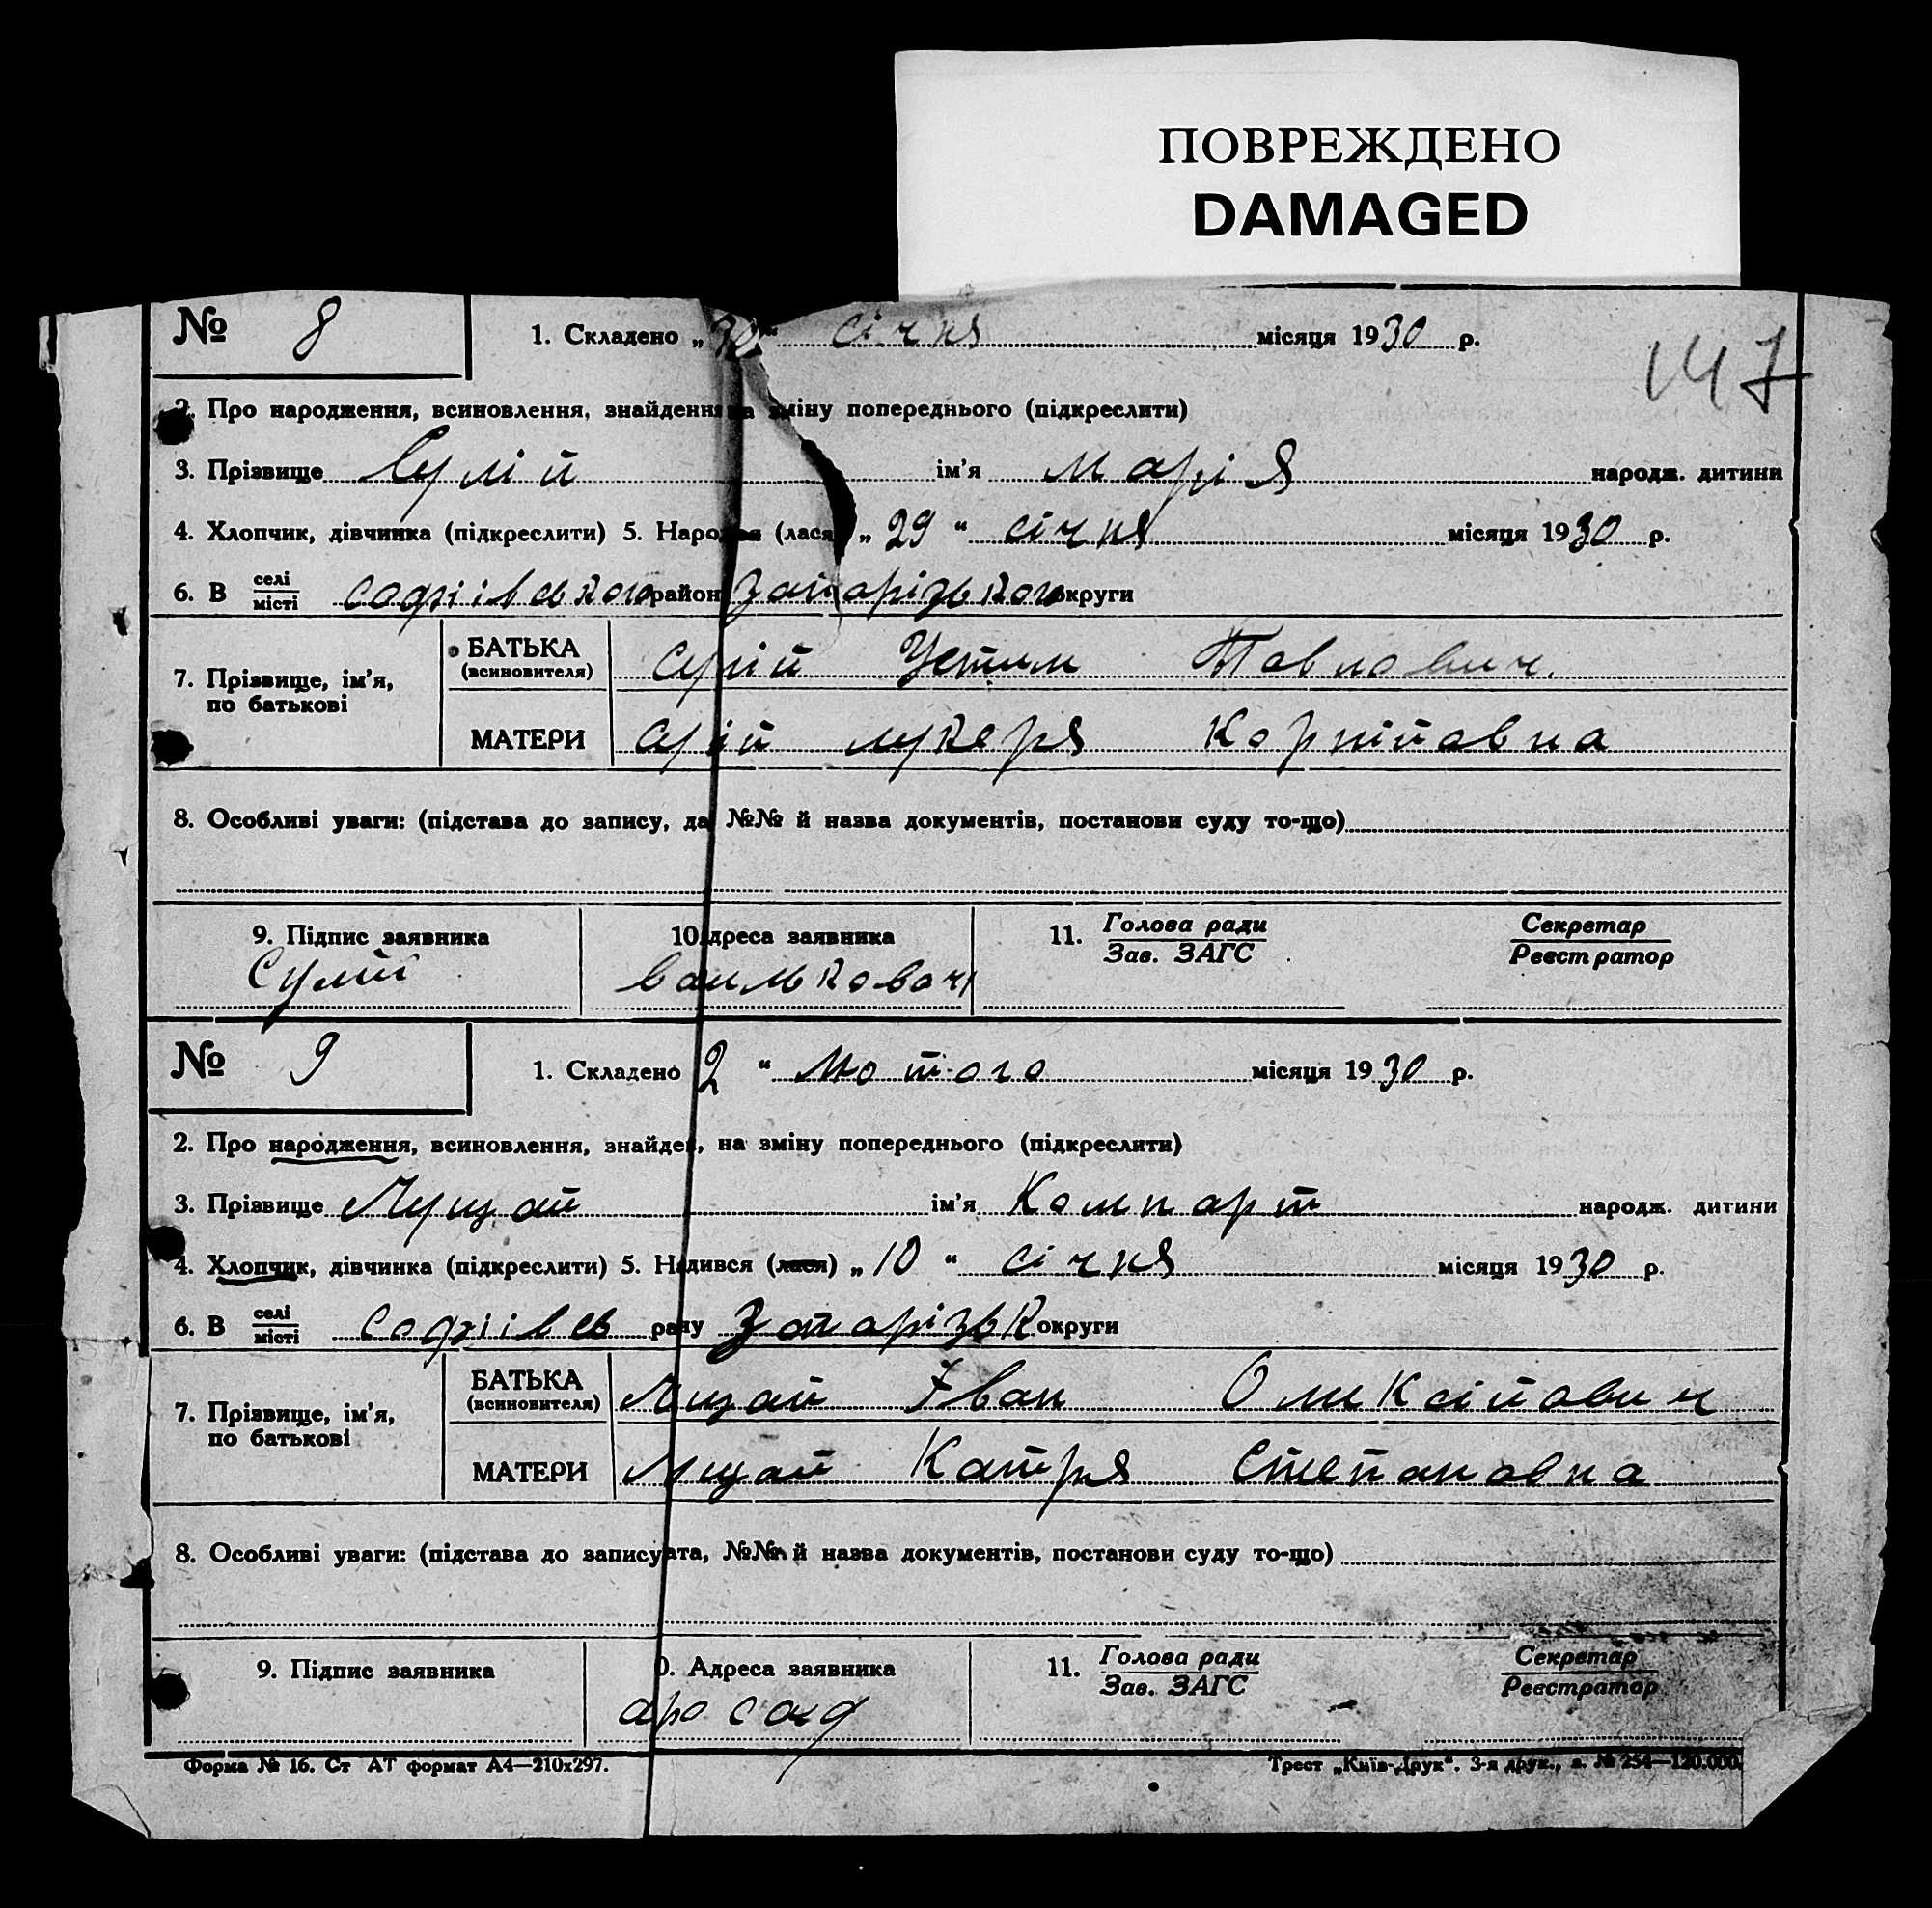 ПОВРЕЖДЕНО
DAMAGED
№ 8 1. Складено „30“ січня місяця 1930 р.
147
2. Про народження, всиновлення, знайдення на зміну попереднього (підкреслити)
3. Прізвище Сулій ім'я Марія народж. дитини
4. Хлопчик, дівчинка (підкреслити) 5. Народ (лася „29“ січня місяця 1930 р.
6. В селі/місті софіівського район Запорізького округи
7. Прізвище, ім'я, по батькові
БАТЬКА (всиновителя) Сулій Устим Павлович.
МАТЕРИ Сулій лукеря Корнійовна
8. Особливі уваги: (підстава до запису, да №№ й назва документів, постанови суду то-що)
9. Підпис заявника 10 дреса заявника 11. Голова ради/Зав. ЗАГС Секретар/Реєстратор
Сулій
№ 9 1. Складено 2“ лютого місяця 1930 р.
2. Про народження, всиновлення, знайде, на зміну попереднього (підкреслити)
3. Прізвище Луцай ім'я Компарт народж. дитини
4. Хлопчик, дівчинка (підкреслити) 5. На дився (лася) „10“ січня місяця 1930 р.
6. В селі/місті софіівсь ра ну Запорізьк округи
7. Прізвище, ім'я, по батькові
БАТЬКА (всиновителя) Іван Оликсійович
МАТЕРИ Катря Степановна
8. Особливі уваги: (підстава до запису ата, №№ й назва документів, постанови суду то-що)
9. Підпис заявника 0. Адреса заявника 11. Голова ради/Зав. ЗАГС Секретар/Реєстратор
Форма № 16. Ст АТ формат А4—210х297. Трест „Київ-Друк“. 3-я друк., з. № 254—120.000.